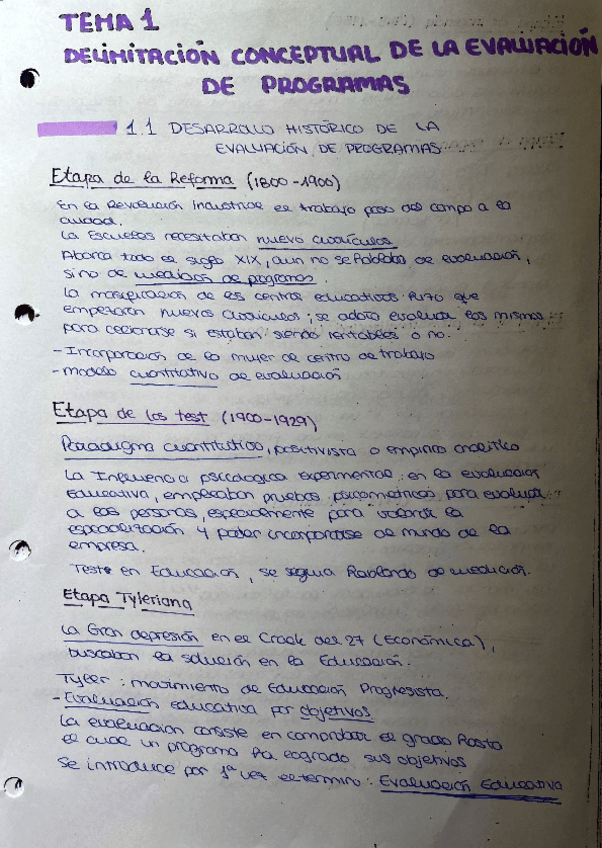 TEMA 1
DELIMITACIÓN CONCEPTUAL DE LA EVALUACIÓN
DE PROGRAMAS
1.1 DESARROLLO HISTÓRICO DE LA
EVALUACIÓN DE PROGRAMAS
Etapa de la Reforma (1800-1900)
En la Revolución Industrial el trabajo paso del campo a la
ciudad.
La Escuelas necesitaban nuevo currículos
Abarca todo el siglo XIX, aun no se hablaba de evaluación,
sino de medición de programas.
La masificación de los centros educativos hizo que
empezaron nuevos currículos, se adora evaluar los mismos
para cecionarse si estaban siendo rentables o no.
- Incorporación de la mujer de centro de trabajo
- modelo cuantitativo de evaluación
Etapa de los test (1900-1929)
Paradigma cuantitativo, positivista o empirico analitico
La Influencia psicologica experimental en la evaluación
Educativa, empleaban pruebas psicometricas para evaluar
a las personas, especialmente para valorar la
especialización y poder incorporarse al mundo de la
empresa.
Tests en Educación, se seguia hablando de medición.
Etapa Tyleriana
La Gran depresión en el Crack del 27 (Económica),
buscaban la solución en la Educación.
Tyler: movimiento de Educación Progresista.
- Evaluación educativa por objetivos
La evaluacion consiste en comprobar el grado hasta
el cual un programa ha logrado sus objetivos
Se introduce por 1ª vez el termino: Evaluación Educativa